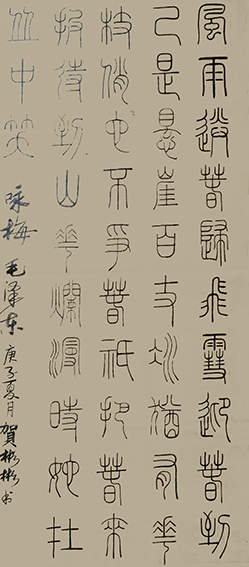 風雨送春歸飛雪迎春到
已是悬崖百丈冰猶有花
枝俏也不爭春祇把春來
报待到山花爛漫時她在
丛中笑
咏梅 毛澤东 庚子夏月 賀彬彬书